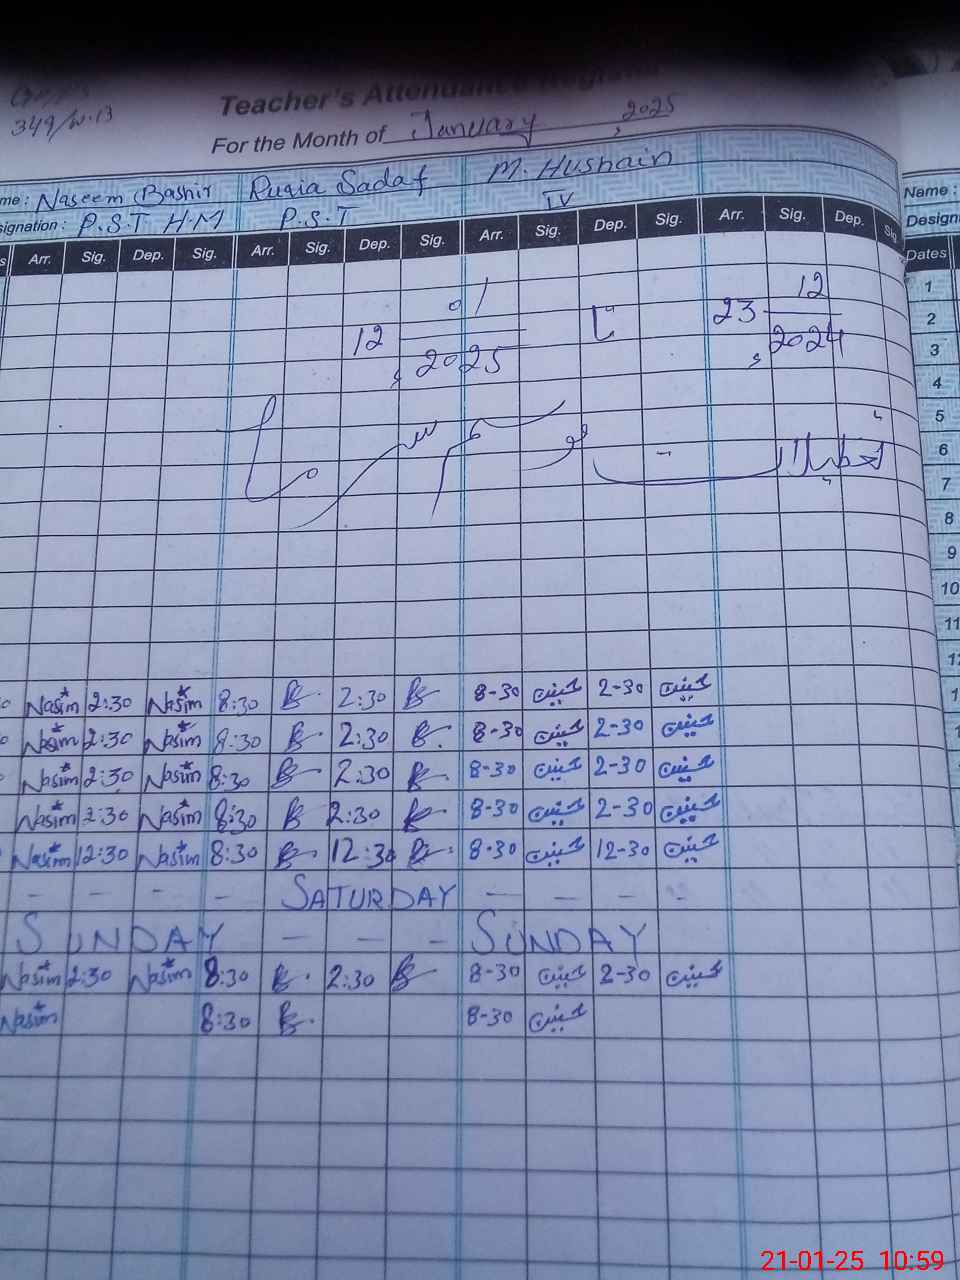 349/W.B
Teacher's Attendance Register
For the Month of January, 2025
me: Naseem Bashir Ruqia Sadaf M. Husnain Name:
signation: P.S.T H.M P.S.T IV Design
s Arr. Sig. Dep. Sig. Arr. Sig. Dep. Sig. Arr. Sig. Dep. Sig. Arr. Sig. Dep. Sig Dates
1
12 01 2025 تا 23 12 2024 2
3
4
5
تعطیلات موسم سرما 6
7
8
9
10
11
12
Nasim 2:30 Nasim 8:30 2:30 8-30 حسنین 2-30 حسنین 1
Nasim 2:30 Nasim 8:30 2:30 8-30 حسنین 2-30 حسنین
Nasim 2:30 Nasim 8:30 2:30 8-30 حسنین 2-30 حسنین
Nasim 2:30 Nasim 8:30 2:30 8-30 حسنین 2-30 حسنین
Nasim 12:30 Nasim 8:30 12:30 8-30 حسنین 12-30 حسنین
- - - - SATURDAY - - - "
SUNDAY - - - SUNDAY
Nasim 2:30 Nasim 8:30 2:30 8-30 حسنین 2-30 حسنین
Nasim 8:30 8-30 حسنین
21-01-25 10:59